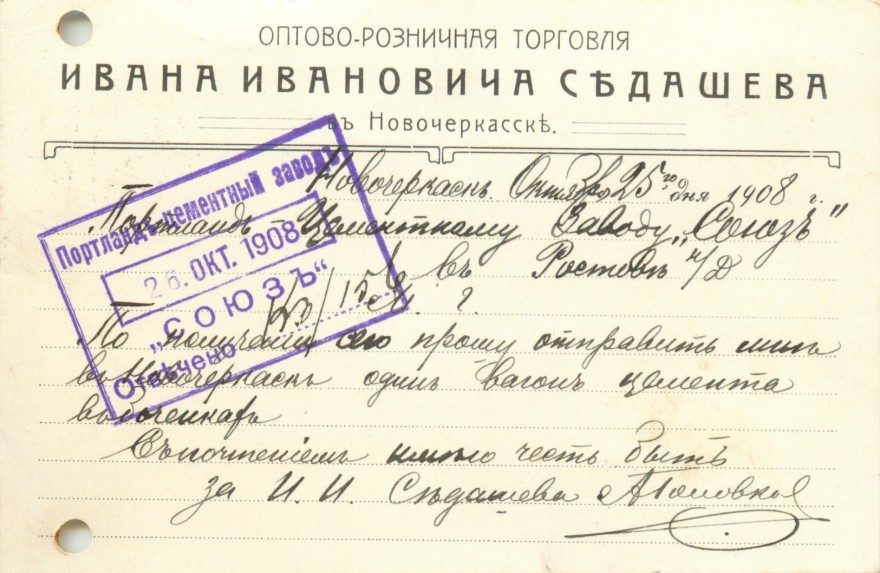 ОПТОВО-РОЗНИЧНАЯ ТОРГОВЛЯ
ИВАНА ИВАНОВИЧА СѢДАШЕВА
въ Новочеркасскѣ.
Новочеркаскъ. Октября 25го дня 1908 г.
Портландъ-Цементному Заводу „Союзъ"
въ Ростовѣ н/Д
По получени сего прошу отправить мнѣ
въ Новочеркаскъ одинъ вагонъ цемента
въ боченкахъ
Съ почтеніемъ имѣю честь быть
за И. И. Сѣдашева
Портландъ-цементный заводъ
26. ОКТ. 1908
„СОЮЗЪ"
Отвѣчено